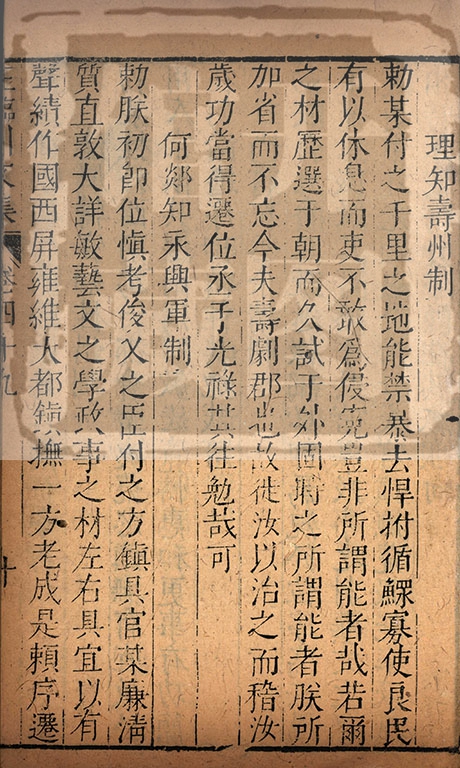 理知壽州制
勑某付之千里之地能禁暴去悍拊循鰥寡使良民
有以休息而吏不敢為侵寃豈非所謂能者哉若爾
之材歷選于朝而久試于外固時之所謂能者朕所
加省而不忘今夫壽劇郡也故徙汝以治之而稽汝
歲功當得遷位丞于光祿其往勉哉可
何郯知永興軍制
勑朕初卽位慎考俊乂之臣付之方鎮具官某廉清
質直敦大詳敏藝文之學政事之材左右具宜以有
聲績作國西屏雍維大都鎮撫一方老成是賴序遷
王臨川文集
卷四十九
十